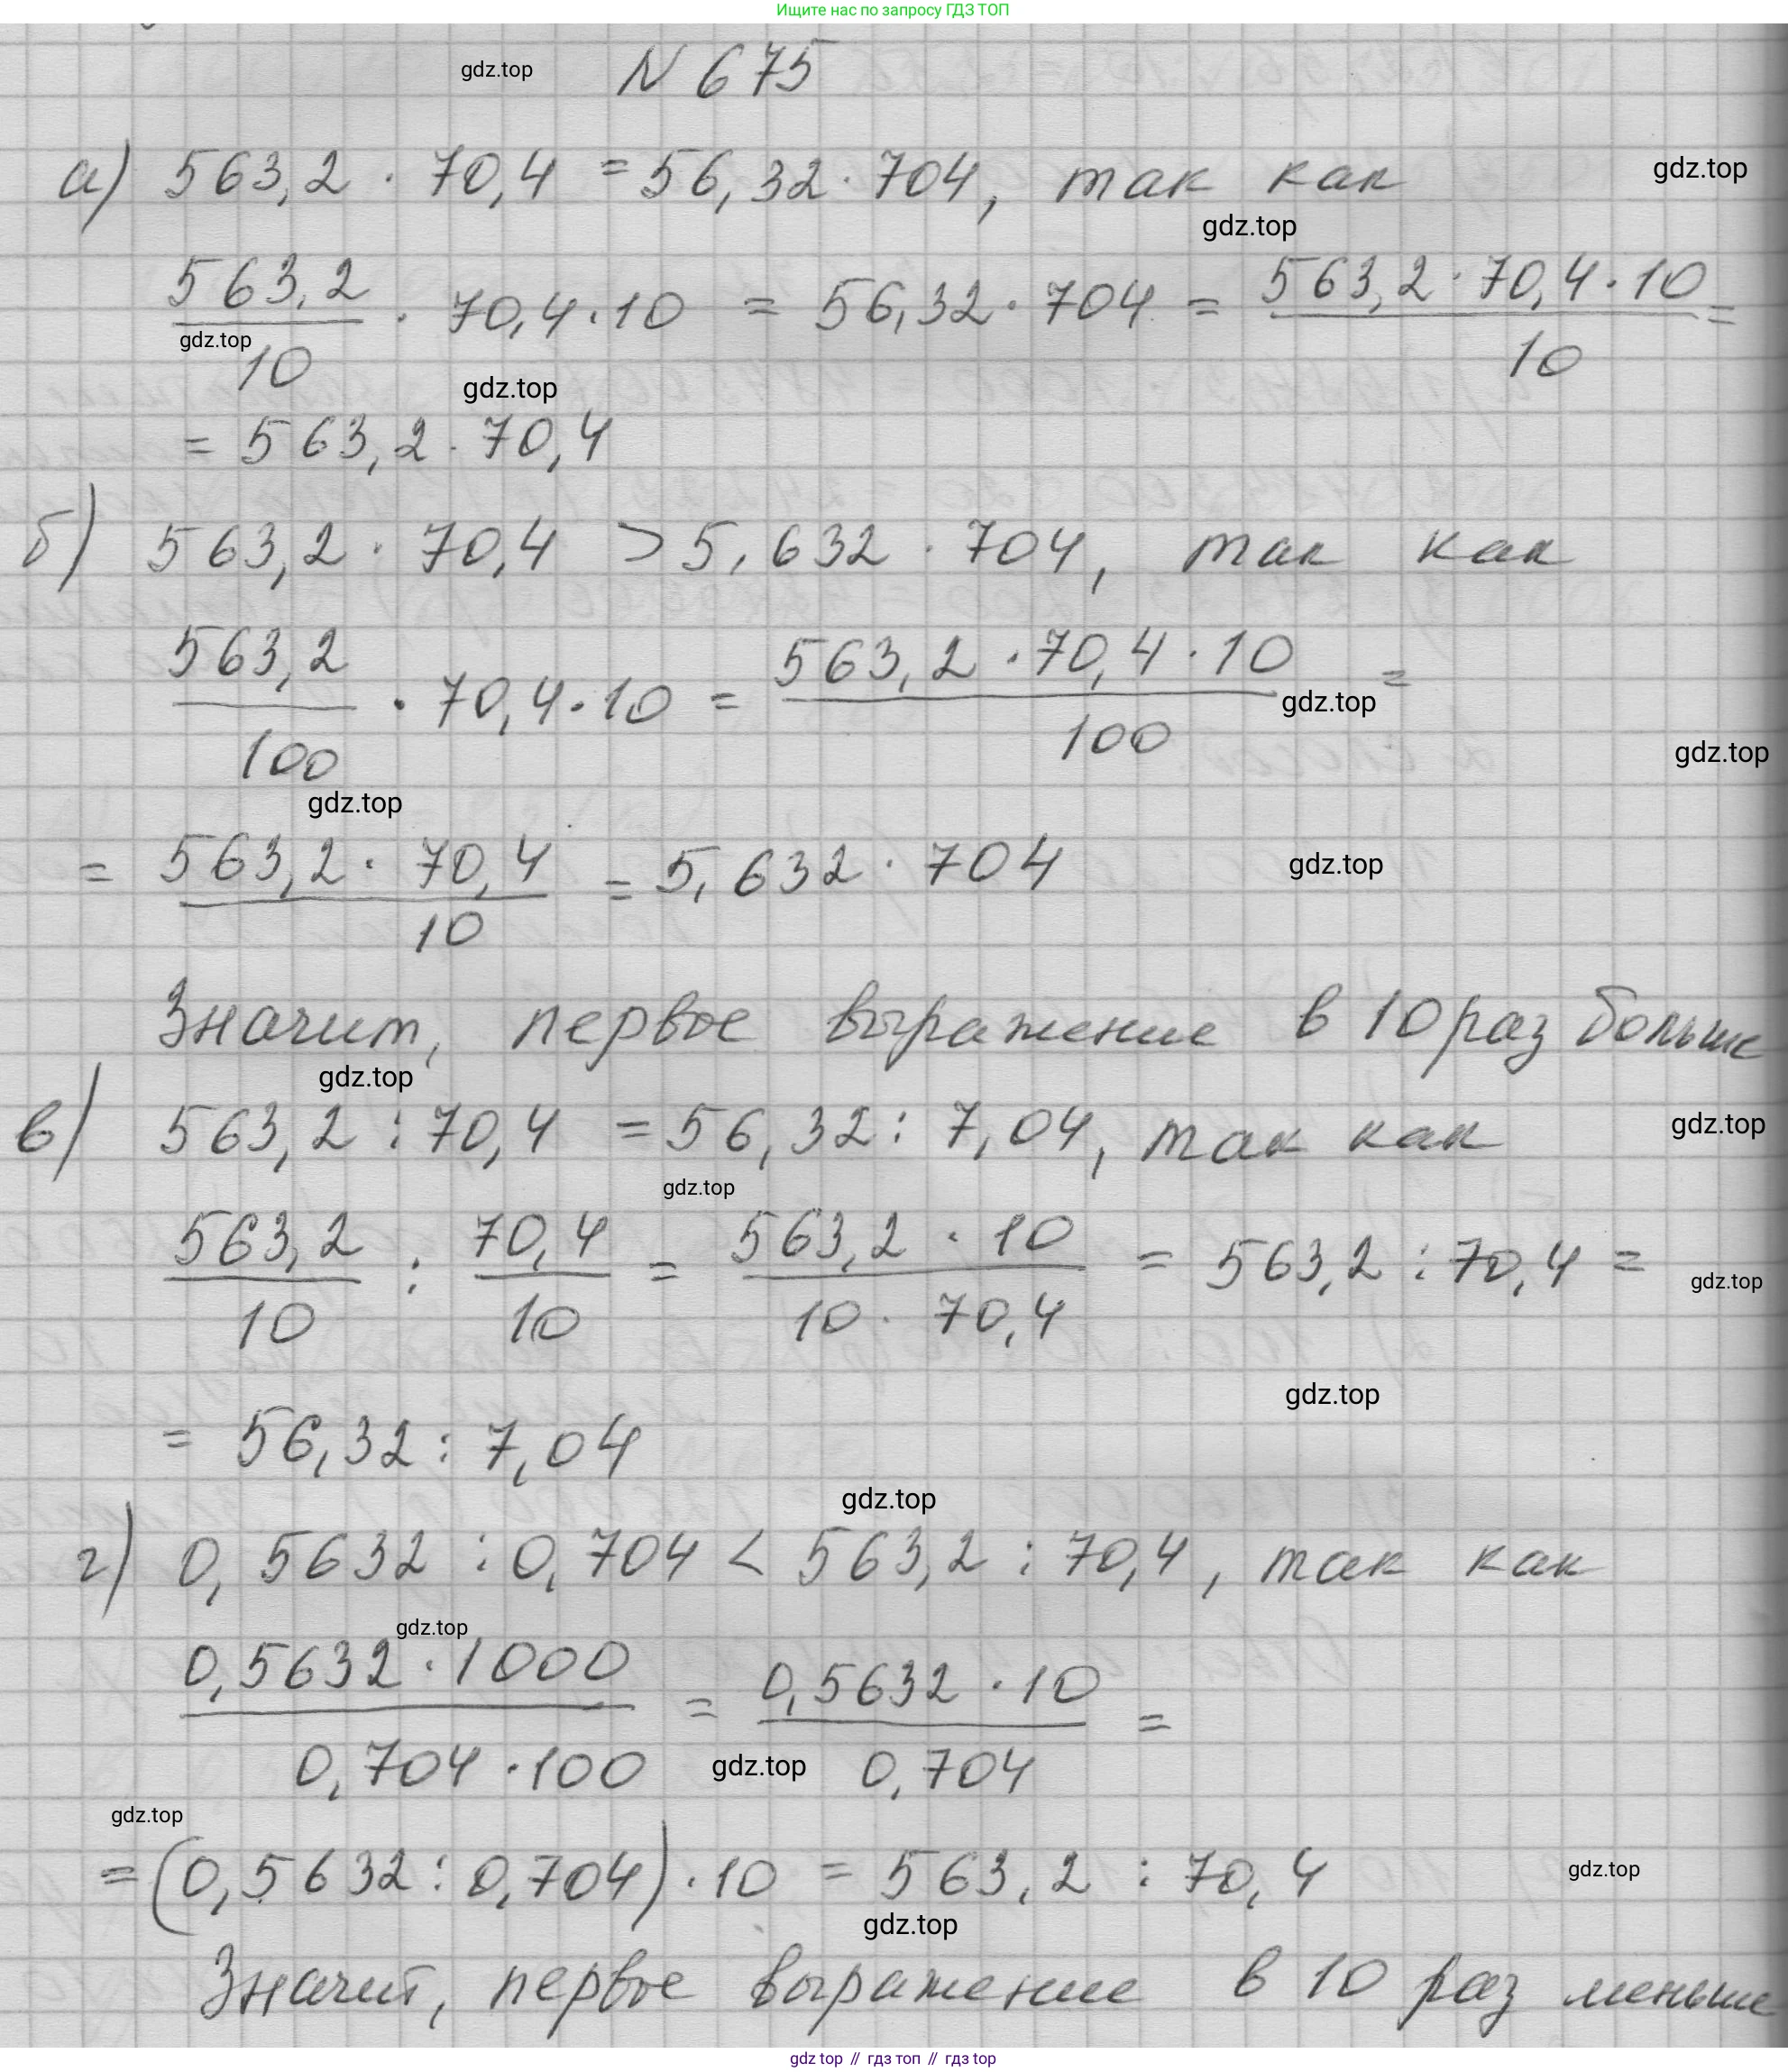 Ищите нас по запросу ГДЗ ТОП
gdz.top N 675
а) 563,2 · 70,4 = 56,32 · 704, так как gdz.top
gdz.top
563,2/10 · 70,4 · 10 = 56,32 · 704 = 563,2 · 70,4 · 10/10 =
gdz.top
gdz.top
= 563,2 · 70,4
б) 563,2 · 70,4 > 5,632 · 704, так как
563,2/100 · 70,4 · 10 = 563,2 · 70,4 · 10/100 =
gdz.top
gdz.top
gdz.top
= 563,2 · 70,4/10 = 5,632 · 704 gdz.top
Значит, первое выражение в 10 раз больше
gdz.top
в) 563,2 : 70,4 = 56,32 : 7,04, так как gdz.top
gdz.top
563,2/10 : 70,4/10 = 563,2 · 10/10 · 70,4 = 563,2 : 70,4 = gdz.top
gdz.top
= 56,32 : 7,04
gdz.top
г) 0,5632 : 0,704 < 563,2 : 70,4, так как
gdz.top
0,5632 · 1000/0,704 · 100 = 0,5632 · 10/0,704 =
gdz.top
gdz.top
= (0,5632 : 0,704) · 10 = 563,2 : 70,4 gdz.top
gdz.top
Значит, первое выражение в 10 раз меньше
gdz top // гдз топ // gdz top